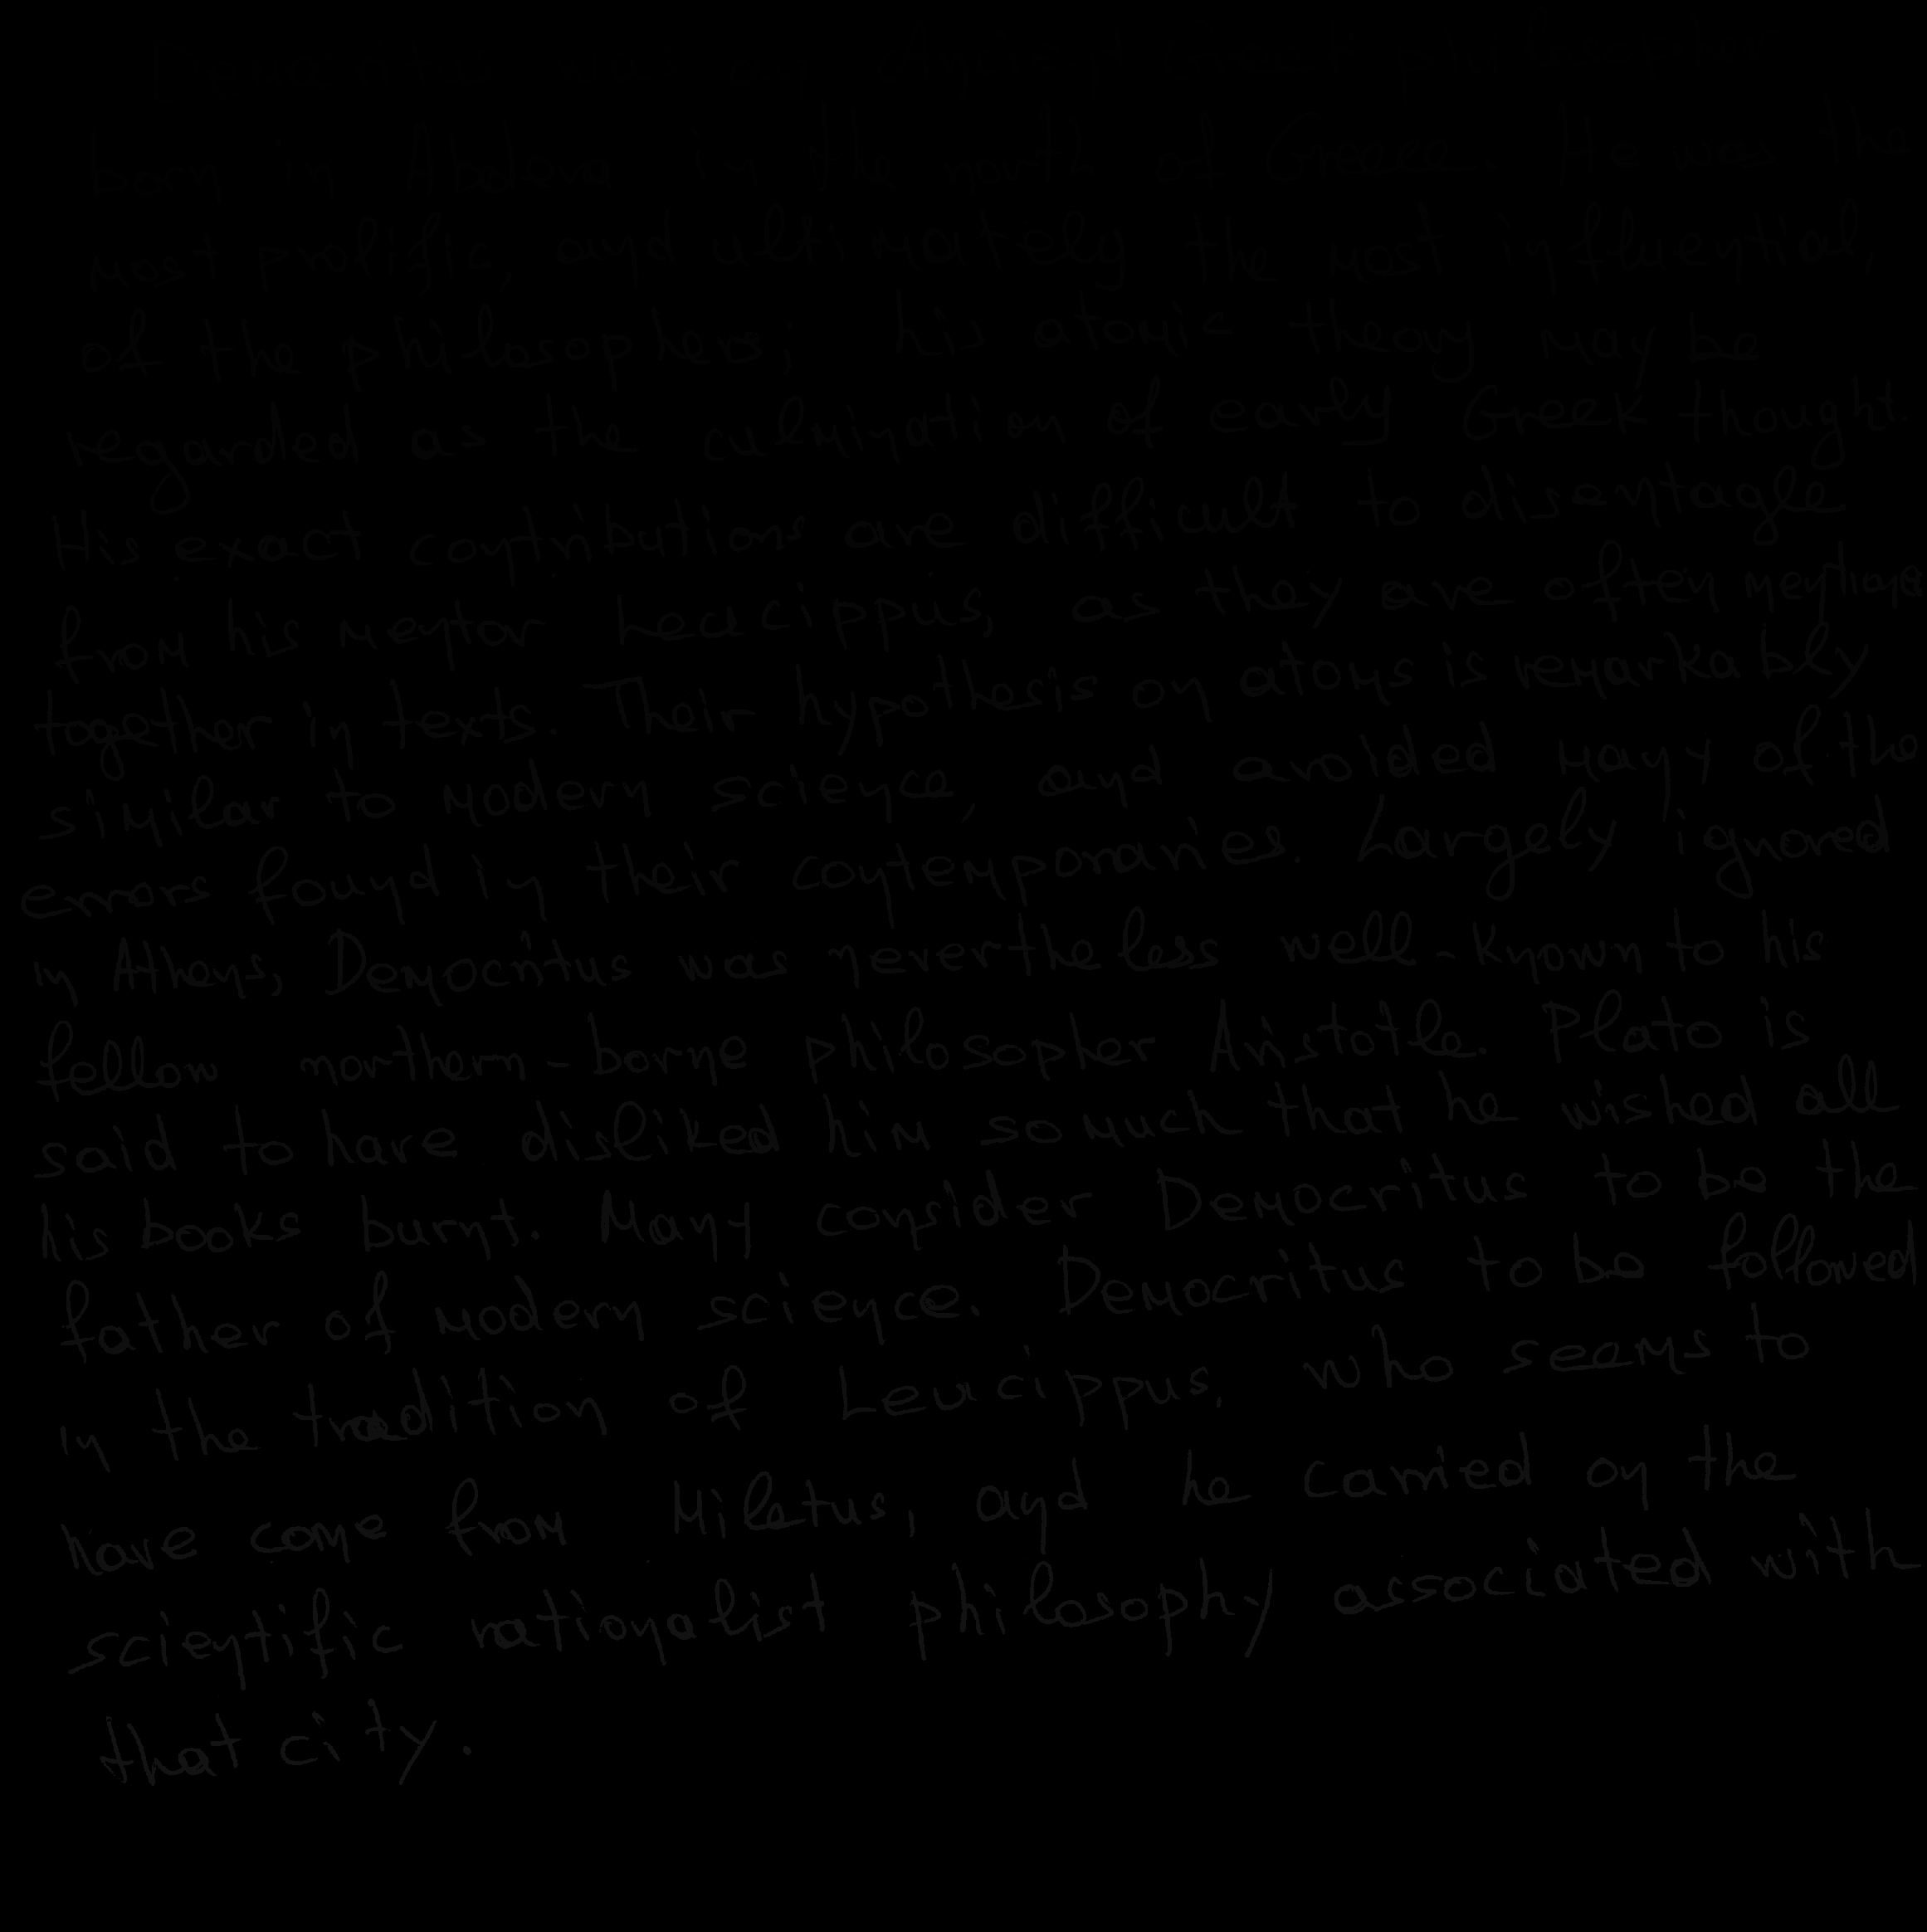 Democritus was an Ancient Greek philosopher
born in Abdera in the north of Greece. He was the
most prolific, and ultimately the most influential,
of the philosophers; his atomic theory may be
regarded as the culmination of early Greek thought.
His exact contributions are difficult to disentagle
from his mentor Leucippus, as they are often mentioned
together in texts. Their hypothesis on atoms is remarkably
similar to modern science, and avoided many of the
errors found in their contemporaries. Largely ignored
in Athens, Democritus was nevertheless well-known to his
fellow northern-borne philosopher Aristotle. Plato is
said to have disliked him so much that he wished all
his books burnt. Many consider Democritus to be the
father of modern science. Democritus to be followed
in the tradition of Leucippus, who seems to
have come from Miletus, and he carried on the
scientific rationalist philosophy associated with
that city.